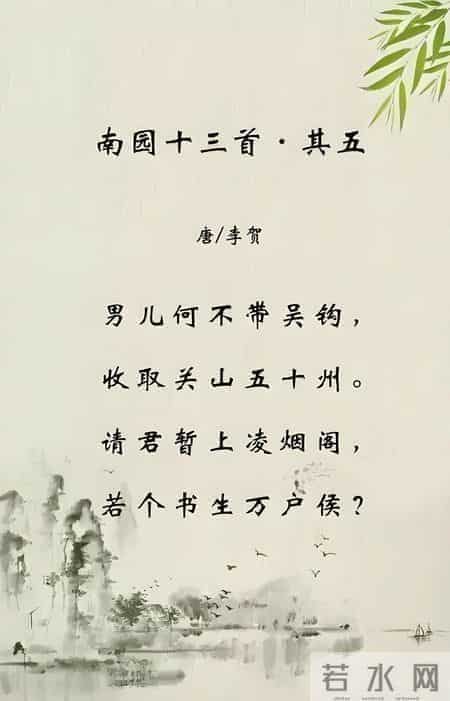 南园十三首·其五
唐/李贺
男儿何不带吴钩，
收取关山五十州。
请君暂上凌烟阁，
若个书生万户侯？
若水网